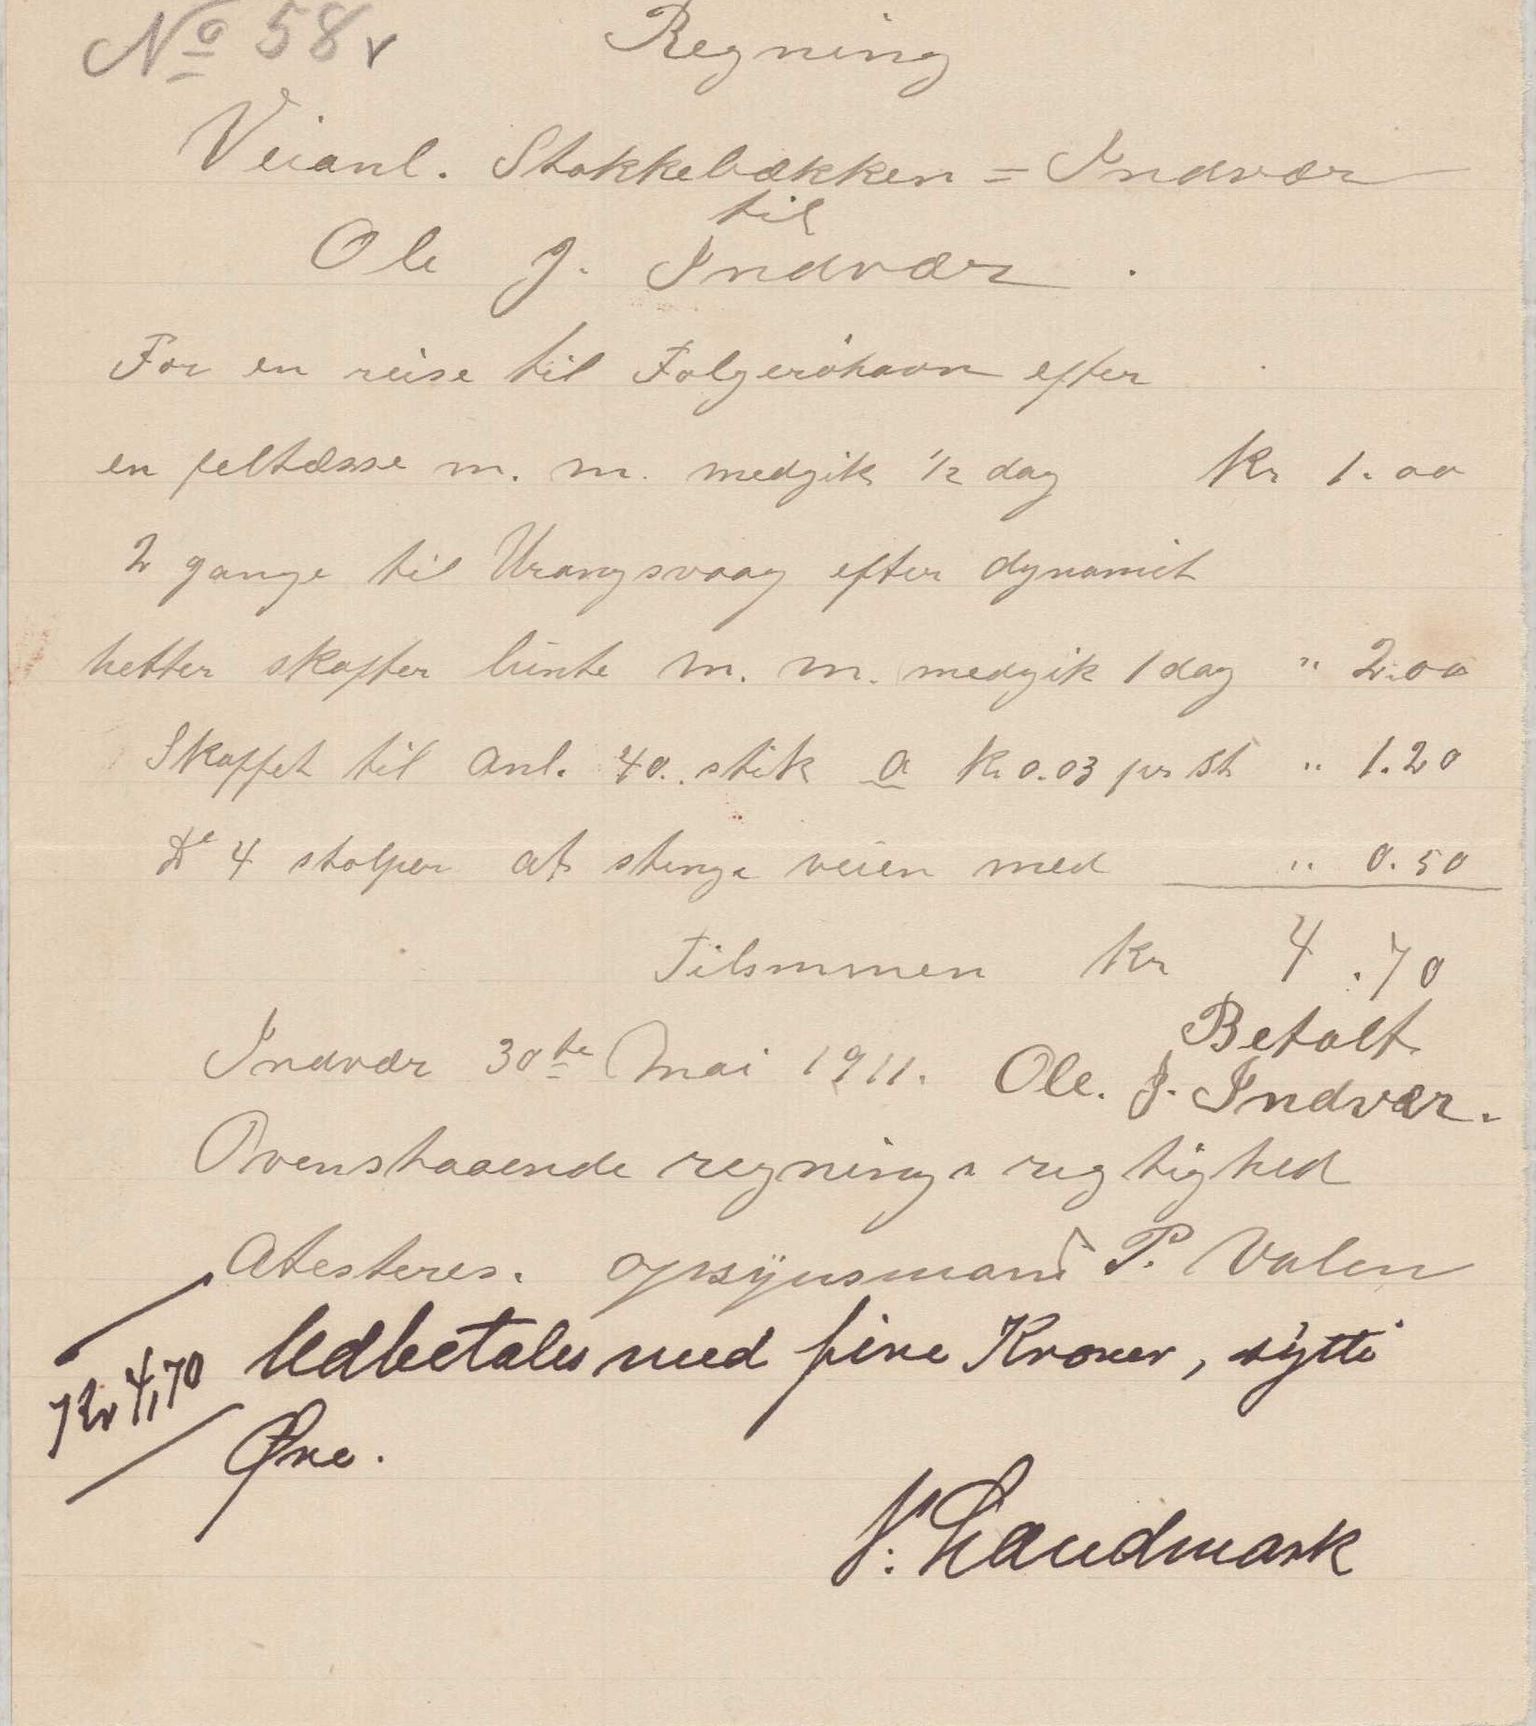 No 58 v
Regning
Veianl. Stokkebækken = Indvær
til
Ole J. Indvær.
For en reise til Folgeröhavn efter
en feltæsse m. m. medgik 1/2 dag kr 1.00
2 gange til Urangsvaag efter dynamit
hetter skaffer lunte m. m. medgik 1 dag " 2.00
Skaffet til anl. 40. stik a kr 0.03 pr st " 1.20
De 4 stolper at stenge veien med " 0.50
Tilsmmen kr 4.70
Betalt
Indvær 30te Mai 1911. Ole. J. Indvær.
Ovenstaaende regnings rigtighed
Atesteres. opsÿnsmand P. Valen
Udbetales med fire Kroner, sÿtti
Kr 4,70
Øre.
N. Landmark